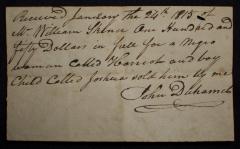 Received January the 24th 1815 of
Mr William Spence One Hundred and
fifty Dollars in full for a Negro
woman Called Harriot and boy
Child Called Joshua sold him by me
John Duhamel